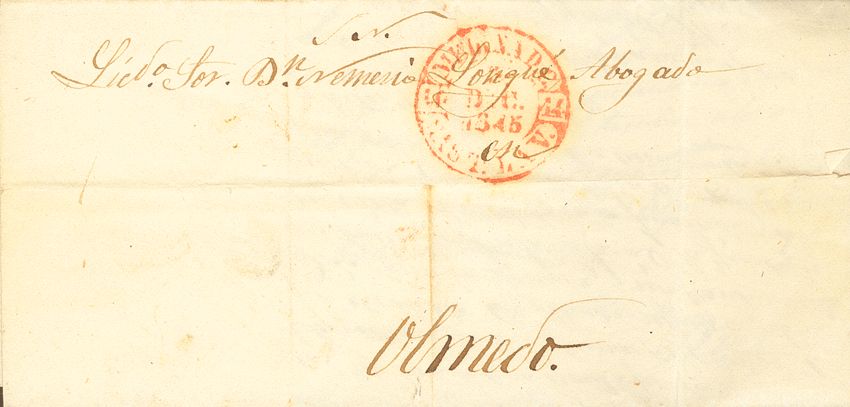 S. N.
Licdo. Sor. Dn. Nemesio Longué Abogado
DIC.
1845
en
Olmedo.